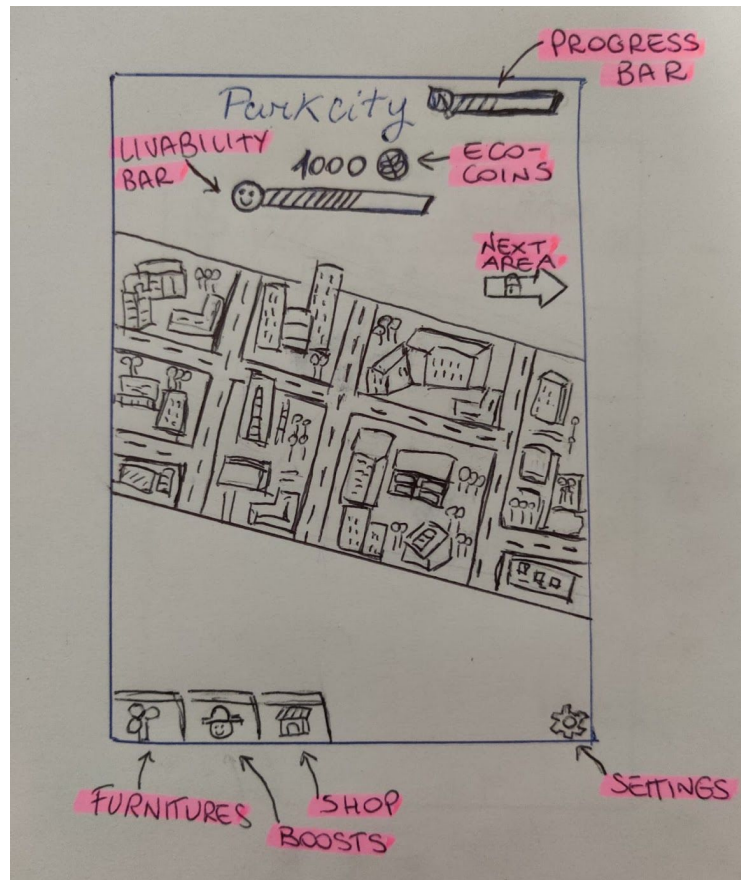 PROGRESS
BAR
Parkcity
LIVABILITY
BAR
1000
ECO-
COINS
NEXT
AREA
FURNITURES
BOOSTS
SHOP
SETTINGS